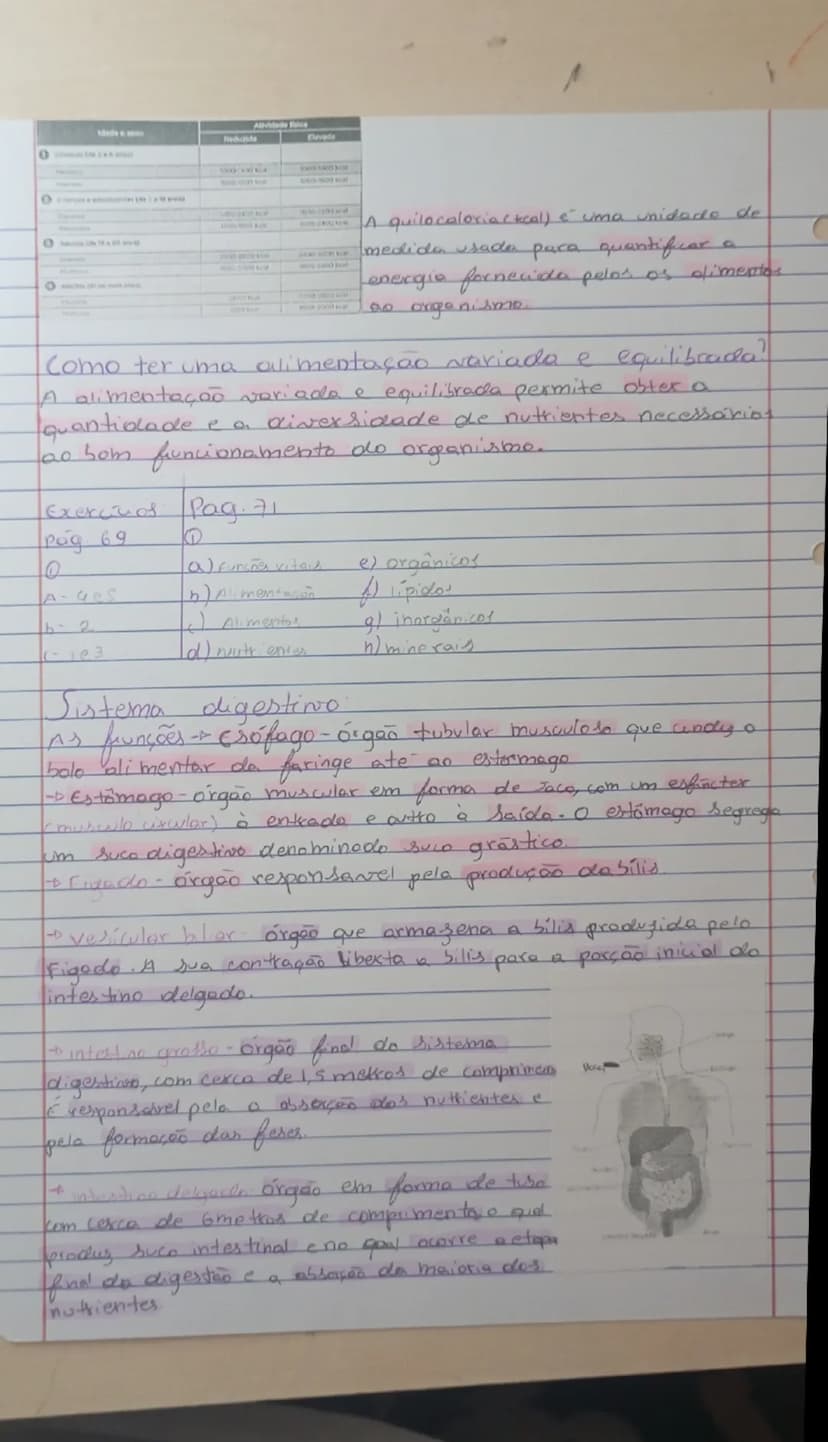 Idade e sexo
Atividade física
Reduzida Elevada
A quilocaloria (kcal) é uma unidade de
medida usada para quantificar a
energia fornecida pelos os alimentos
ao organismo.
Como ter uma alimentação variada e equilibrada?
A alimentação variada e equilibrada permite obter a
quantidade e a diversidade de nutrientes necessários
ao bom funcionamento do organismo.
Exercicios Pag. 71
pág. 69 ①
① a) Funções vitais e) orgânicos
A- 4e5 b) Alimentação f) lípidos
b- 2 c) Alimentos g) inorgânicos
c- 1e3 d) nutrientes h) minerais
Sistema digestivo
As funções → Esófago - órgão tubular musculoso que o
bolo alimentar da faringe até ao
→ Estômago - órgão muscular em forma de saco, com um esfíncter
(musculo circular) à entrada e outro à saída. O estômago segrega
um suco digestivo denominado suco grástico.
→ Figado - órgão responsavel pela produção da bílis.
→ vesícular órgão que armazena a bílis produzida pelo
Figado. A sua contração liberta a bilis para a porção inicial do
intestino delgado.
→ intestino grosso - órgão final do sistema
digestivo, com cerca de 1,5 metros de
É responsavel pela a absorção dos nutrientes e
pela formação das feses.
→ intestino delgado órgão em forma de tubo
com cerca de 6 metros de comprimento o qual
produz suco intestinal e no qual ocorre a etapa
final da digestão e a absorção da maioria dos
nutrientes
Boca